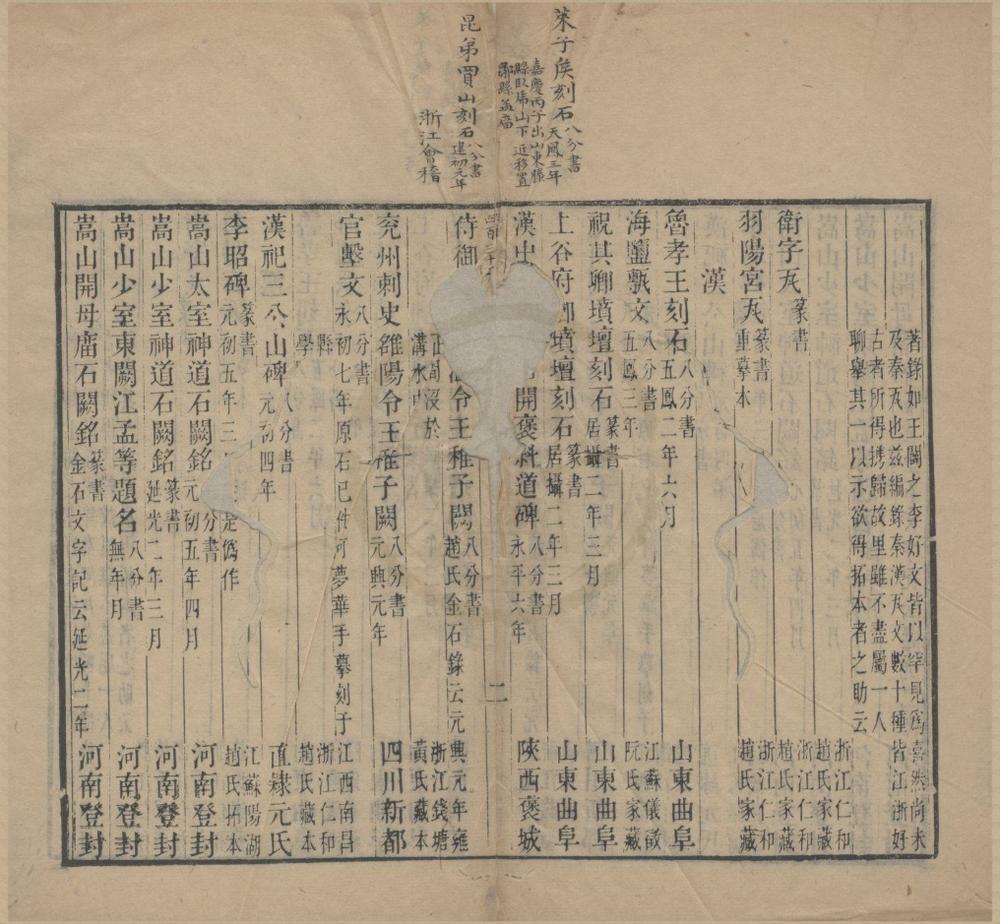 萊子矦刻石八分書天鳳三年
嘉慶丙子出山東滕縣臥虎山下近移置鄒縣孟廟
昆弟買山刻石八分書建初元年
浙江會稽
著錄如王闢之李好文皆以罕見爲喜然尚未
及秦瓦也兹編錄秦漢瓦文數十種皆江浙好
古者所得携歸故里雖不盡屬一人
聊舉其一以示欲得拓本者之助云
浙江仁和趙氏家藏
衛字瓦篆書
浙江仁和趙氏家藏
羽陽宮瓦篆書重摹本
浙江仁和趙氏家藏
漢
魯孝王刻石八分書五鳳二年六月
山東曲阜
海鹽甎文八分書五鳳三年
江蘇儀徵阮氏家藏
祝其卿墳壇刻石篆書居攝二年三月
山東曲阜
上谷府卿墳壇刻石篆書居攝二年三月
山東曲阜
漢中
開褒斜道碑八分書永平六年
陝西褒城
二
侍御
令王稚子闕八分書趙氏金石錄云元興元年雍
正間沒於溝水中
浙江錢塘黃氏藏本
兗州刺史雒陽令王稚子闕八分書元興元年
四川新都
官墼文八分書永初七年原石已佚何夢華手摹刻于
縣學
江西南昌
浙江仁和趙氏藏本
漢祀三公山碑八分書元初四年
直隸元氏
李昭碑篆書元初五年三
是僞作
江蘇陽湖趙氏拓本
嵩山太室神道石闕銘
分書元初五年四月
河南登封
嵩山少室神道石闕銘篆書延光二年三月
河南登封
嵩山少室東闕江孟等題名八分書無年月
河南登封
嵩山開母廟石闕銘篆書金石文字記云延光二年
河南登封